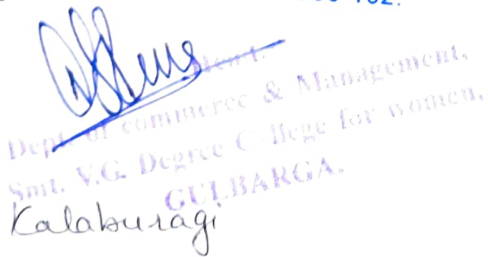 Dept. of commerce & Management,
Smt. V.G. Degree College for women,
GULBARGA.
Kalaburagi